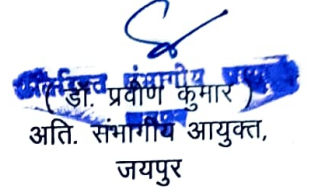 ( डॉ. प्रवीण कुमार )
अति. संभागीय आयुक्त,
जयपुर